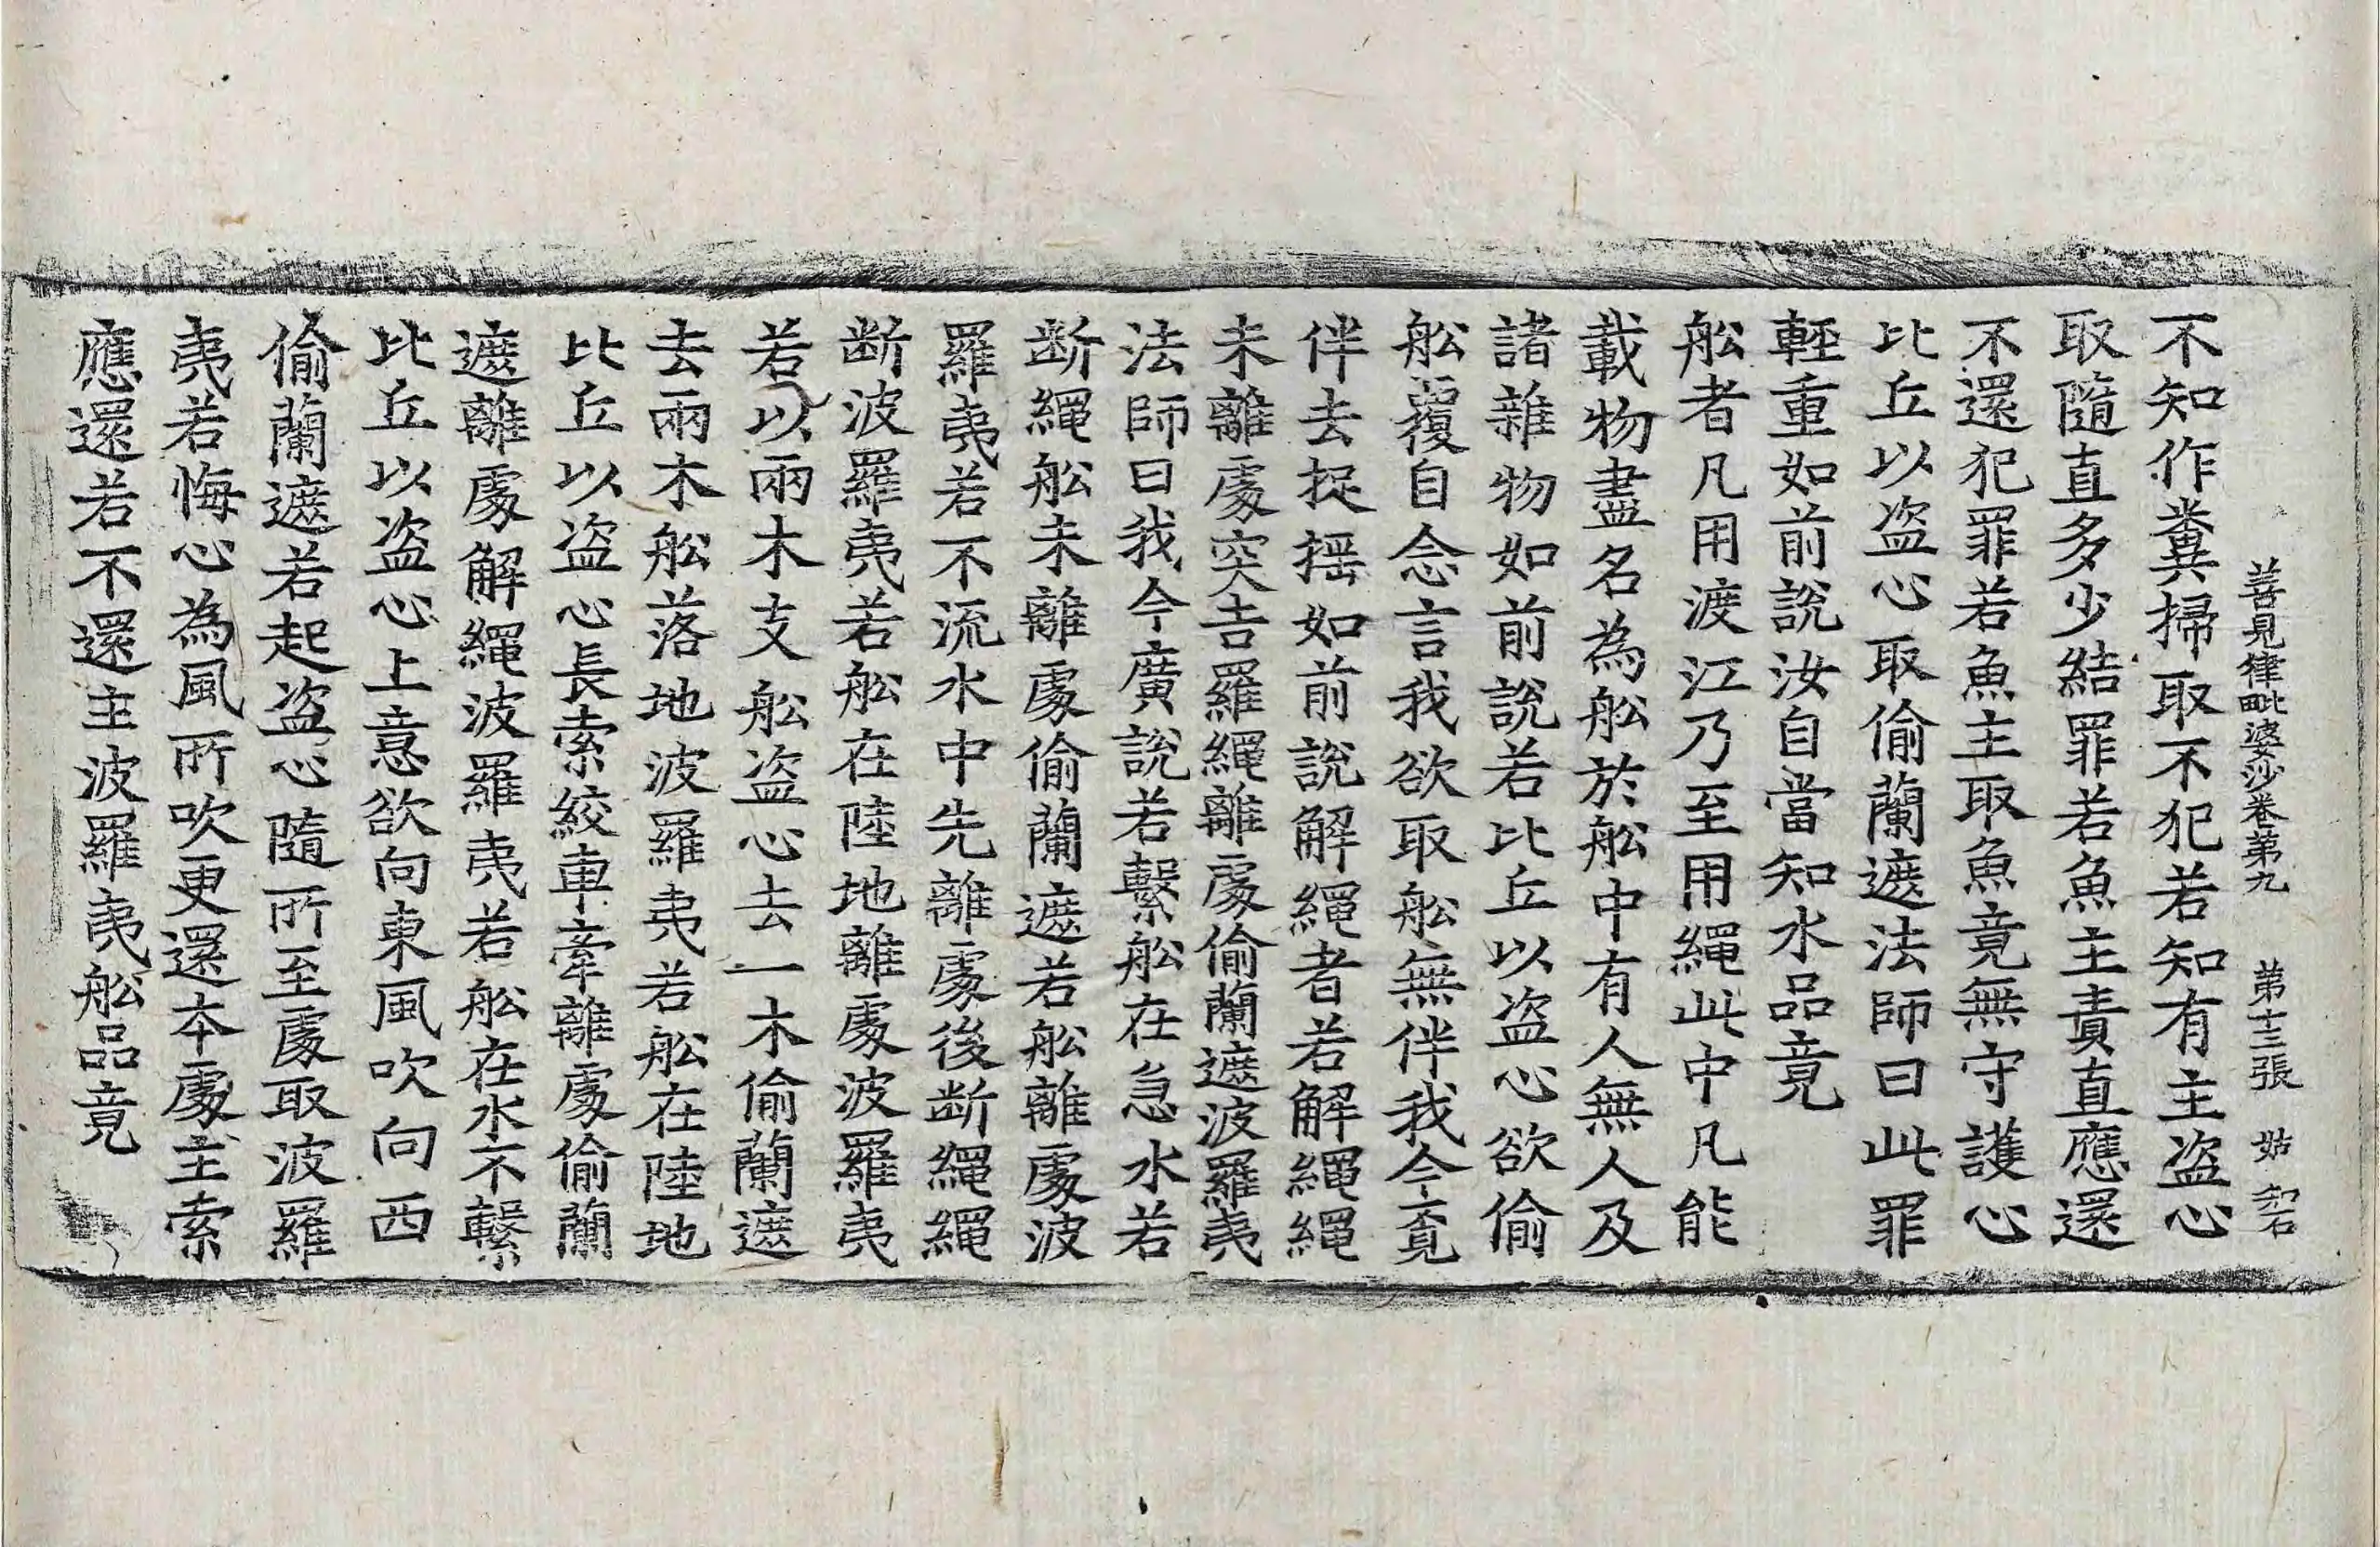 善見律毗婆沙卷第九 第十三張 姑
不知作糞掃取不犯若知有主盗心
取隨直多少結罪若魚主責直應還
不還犯罪若魚主取魚竟無守護心
比丘以盗心取偷蘭遮法師曰此罪
輕重如前說汝自當知水品竟
舩者凡用渡江乃至用繩此中凡能
載物盡名為舩於舩中有人無人及
諸雜物如前說若比丘以盗心欲偷
舩覆自念言我欲取舩無伴我今覔
伴去捉揺如前說解繩者若解繩繩
未離處突吉羅繩離處偷蘭遮波羅夷
法師曰我今廣說若繫舩在急水若
断繩舩未離處偷蘭遮若舩離處波
羅夷若不流水中先離處後断繩繩
断波羅夷若舩在陸地離處波羅夷
若以兩木支舩盗心去一木偷蘭遮
去兩木舩落地波羅夷若舩在陸地
比丘以盗心長索絞車牽離處偷蘭
遮離處解繩波羅夷若舩在水不繫
比丘以盗心上意欲向東風吹向西
偷蘭遮若起盗心隨所至處取波羅
夷若悔心為風所吹更還本處主索
應還若不還主波羅夷舩品竟